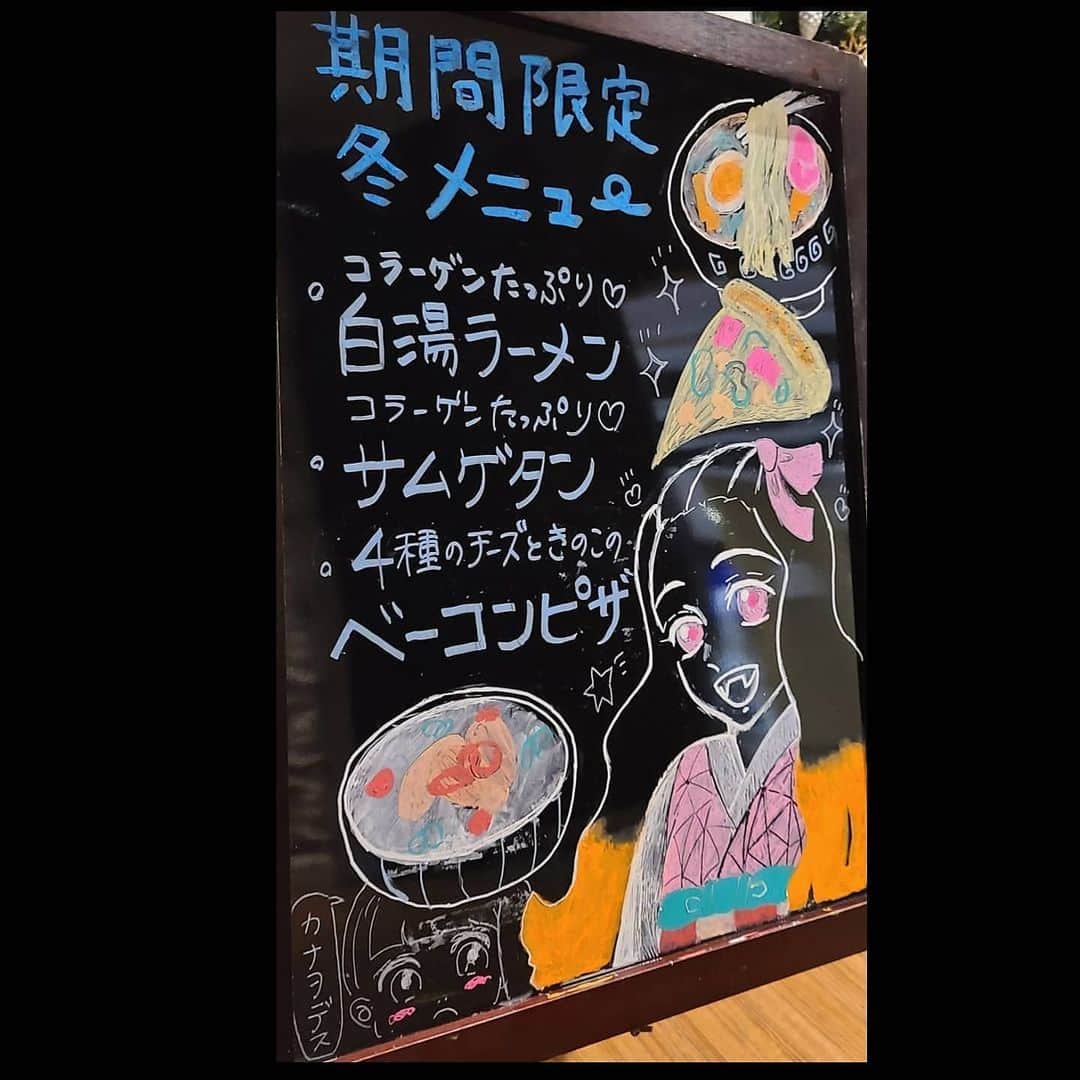 期間限定
冬メニュー
コラーゲンたっぷり♡
白湯ラーメン
コラーゲンたっぷり♡
サムゲタン
4種のチーズときのこの
ベーコンピザ
カナヲデス